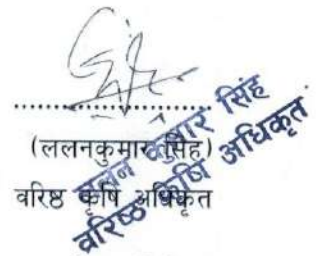 ....................
(ललनकुमार सिंह)
वरिष्ठ कृषि अधिकृत
ललन कुमार सिंह
वरिष्ठ कृषि अधिकृत